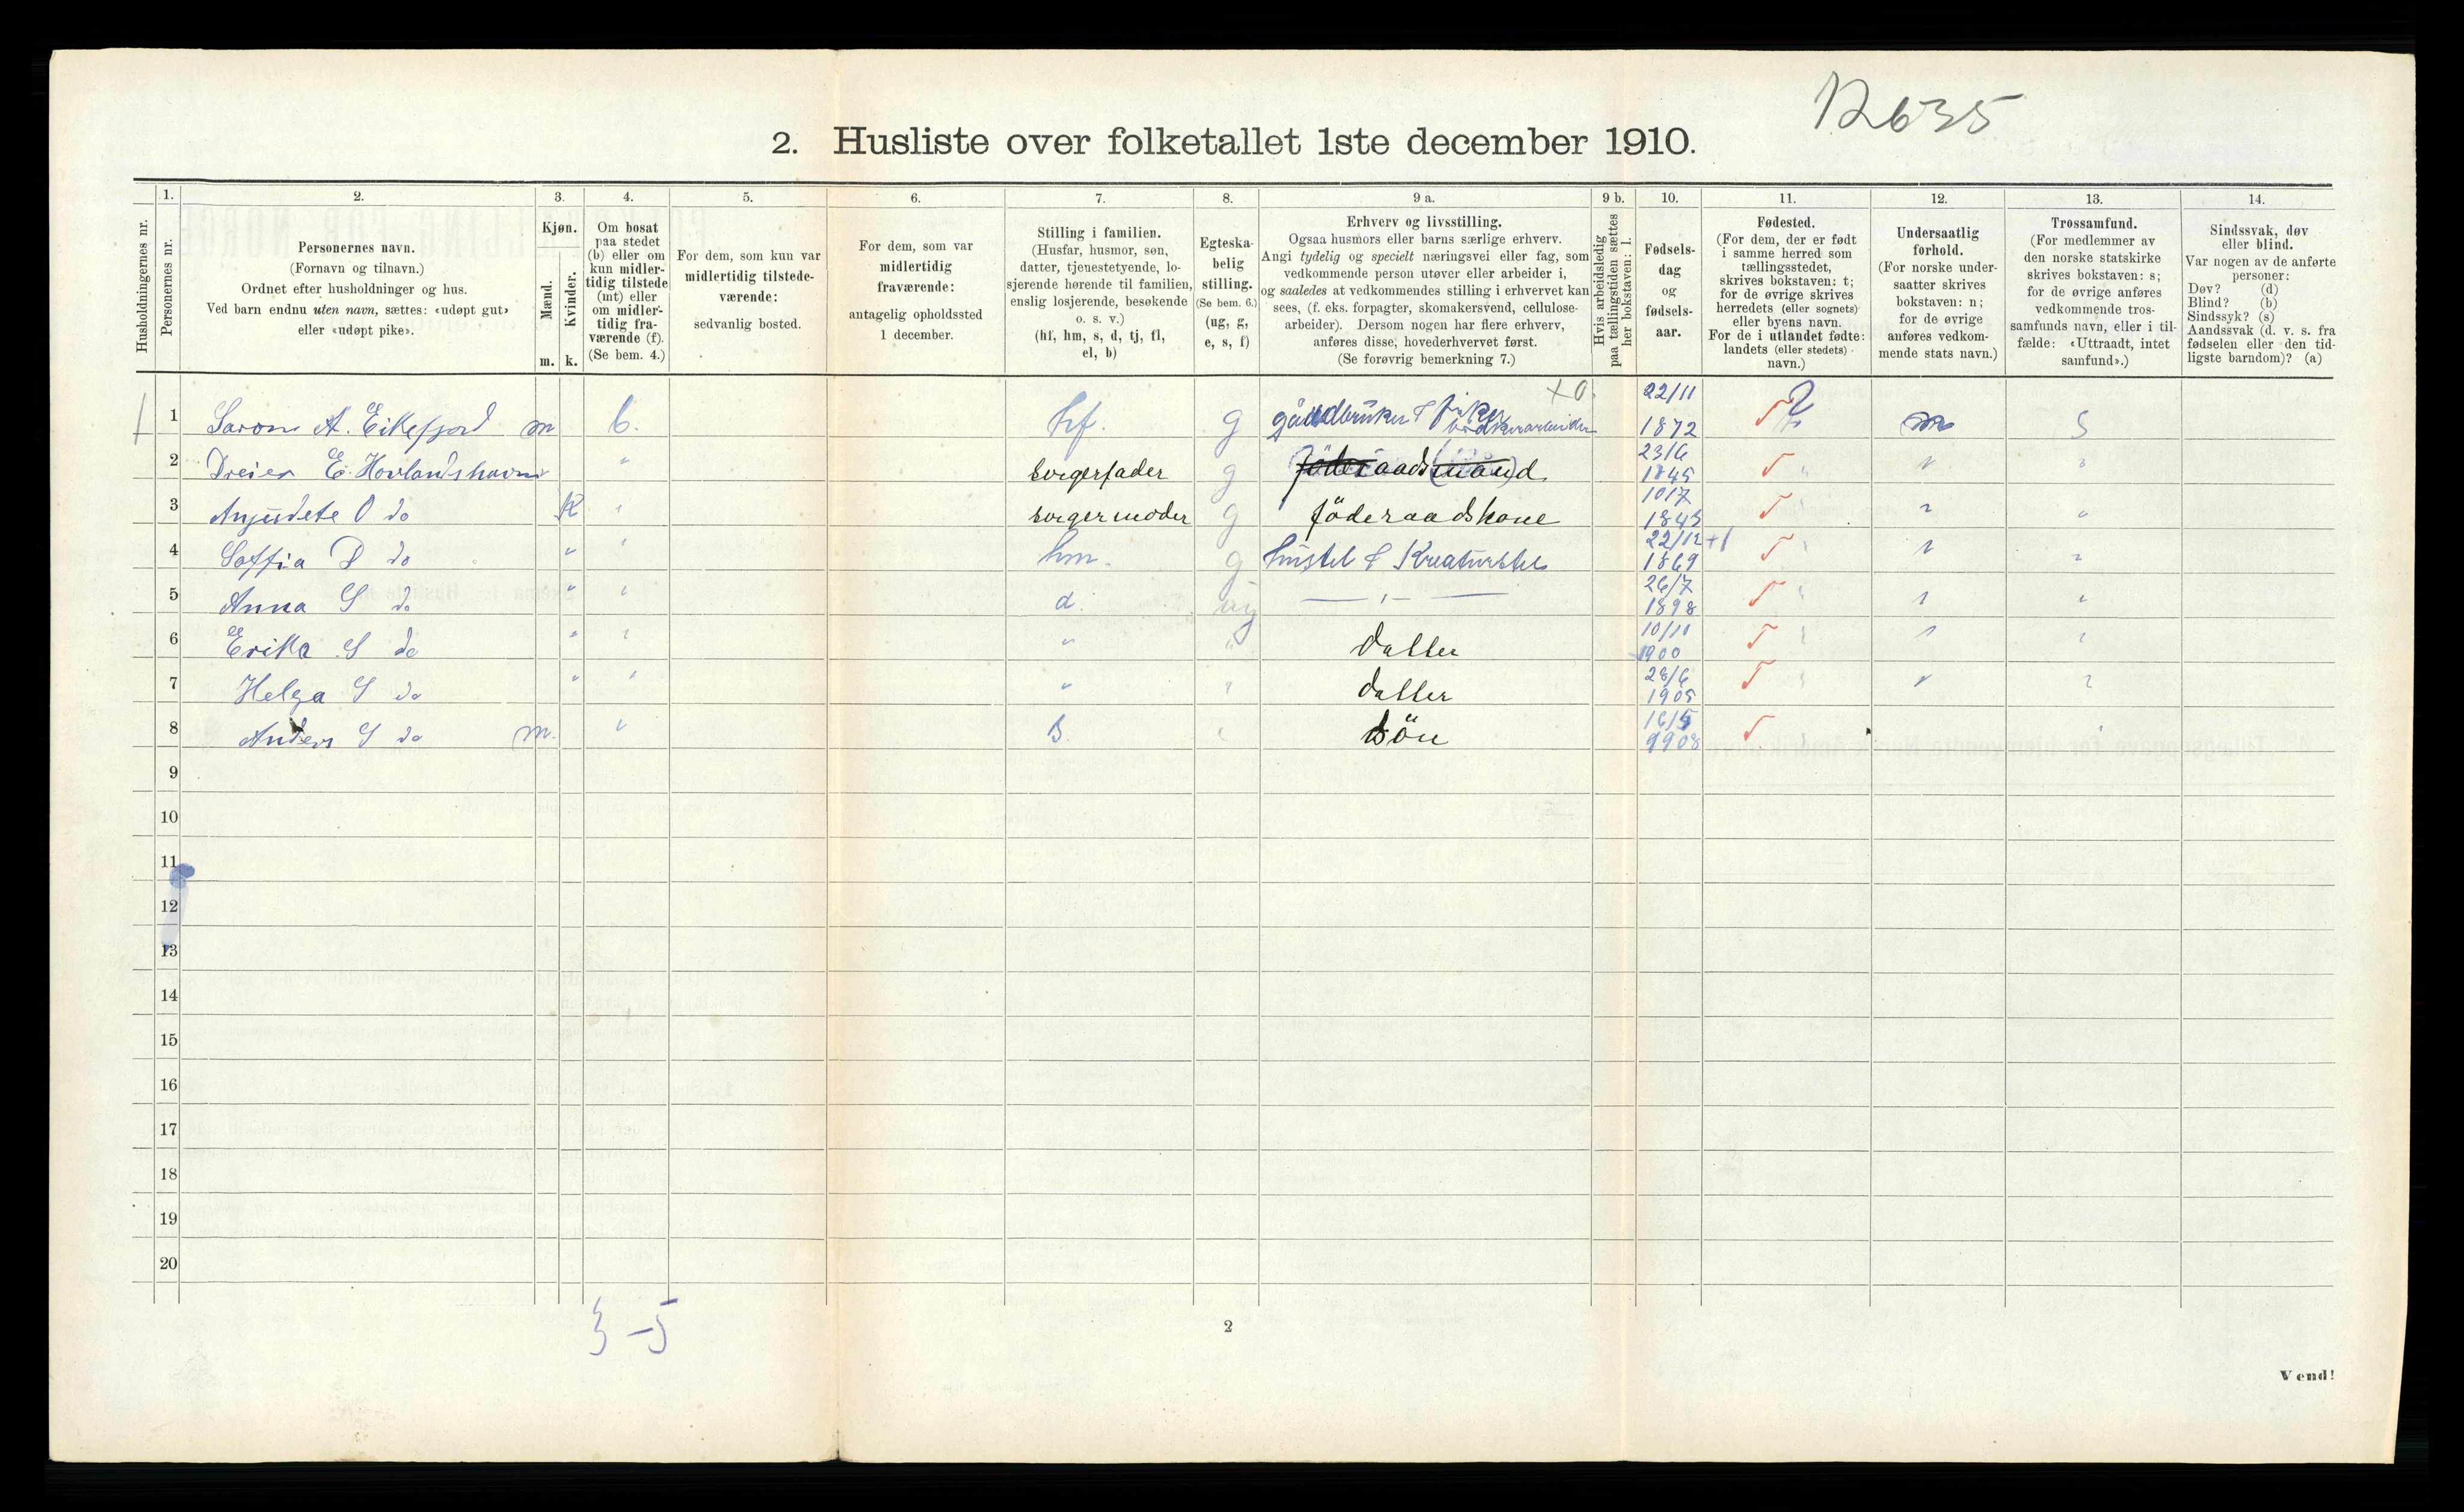 12635
2. Husliste over folketallet 1ste december 1910.
Husholdningernes nr.
1.
Personernes nr.
2.
Personernes navn.
(Fornavn og tilnavn.)
Ordnet efter husholdninger og hus.
Ved barn endnu uten navn, sættes: «udøpt gut»
eller «udøpt pike».
3.
Kjøn.
Mænd.
Kvinder.
m. k.
4.
Om bosat
paa stedet
(b) eller om
kun midler-
tidig tilstede
(mt) eller
om midler-
tidig fra-
værende (f).
(Se bem. 4.)
5.
For dem, som kun var
midlertidig tilstede-
værende:
sedvanlig bosted.
6.
For dem, som var
midlertidig
fraværende:
antagelig opholdssted
1 december.
7.
Stilling i familien.
(Husfar, husmor, søn,
datter, tjenestetyende, lo-
sjerende hørende til familien,
enslig losjerende, besøkende
o. s. v.)
(hf, hm, s, d, tj, fl,
el, b)
8.
Egteska-
belig
stilling.
(Se bem. 6.)
(ug, g,
e, s, f)
9 a.
Erhverv og livsstilling.
Ogsaa husmors eller barns særlige erhverv.
Angi tydelig og specielt næringsvei eller fag, som
vedkommende person utøver eller arbeider i,
og saaledes at vedkommendes stilling i erhvervet kan
sees, (f. eks. forpagter, skomakersvend, cellulose-
arbeider). Dersom nogen har flere erhverv,
anføres disse, hovederhvervet først.
(Se forøvrig bemerkning 7.)
9 b.
Hvis arbeidsledig
paa tællingstiden sættes
her bokstaven: l.
10.
Fødsels-
dag
og
fødsels-
aar.
11.
Fødested.
(For dem, der er født
i samme herred som
tællingsstedet,
skrives bokstaven: t;
for de øvrige skrives
herredets (eller sognets)
eller byens navn.
For de i utlandet fødte:
landets (eller stedets)
navn.)
12.
Undersaatlig
forhold.
(For norske under-
saatter skrives
bokstaven: n;
for de øvrige
anføres vedkom-
mende stats navn.)
13.
Trossamfund.
(For medlemmer av
den norske statskirke
skrives bokstaven: s;
for de øvrige anføres
vedkommende tros-
samfunds navn, eller i til-
fælde: «Uttraadt, intet
samfund».)
14.
Sindssvak, døv
eller blind.
Var nogen av de anførte
personer:
Døv? (d)
Blind? (b)
Sindssyk? (s)
Aandssvak (d. v. s. fra
fødselen eller den tid-
ligste barndom)? (a)
1 A. Eikefjord m b. hf. g 22/11 1872 S
2 E. Hovlandshavn " sorgerfader g föderaadsmand 23/6 1845
3 O do k " sorgermoder g föderaadskone 1017 1843
4 Soffia D do " " hm. g hustel & Kreaturstel 22/12 1869
5 Anna S do " " d. ug — " — 26/7 1898
6 Erika S do " " " " datter 10/10 1900
7 Helga S do " " " " datter 28/6 1905
8 Anders S do m. " S. " sön 16/5 1908
9
10
11
12
13
14
15
16
17
18
19
20
3 - 5
2
Vend!